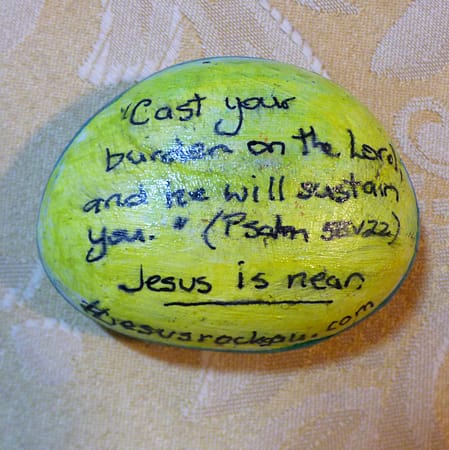 "Cast your
burden on the Lord,
and he will sustain
you." (Psalm 55v22)
Jesus is near.
#jesusrocksu.com